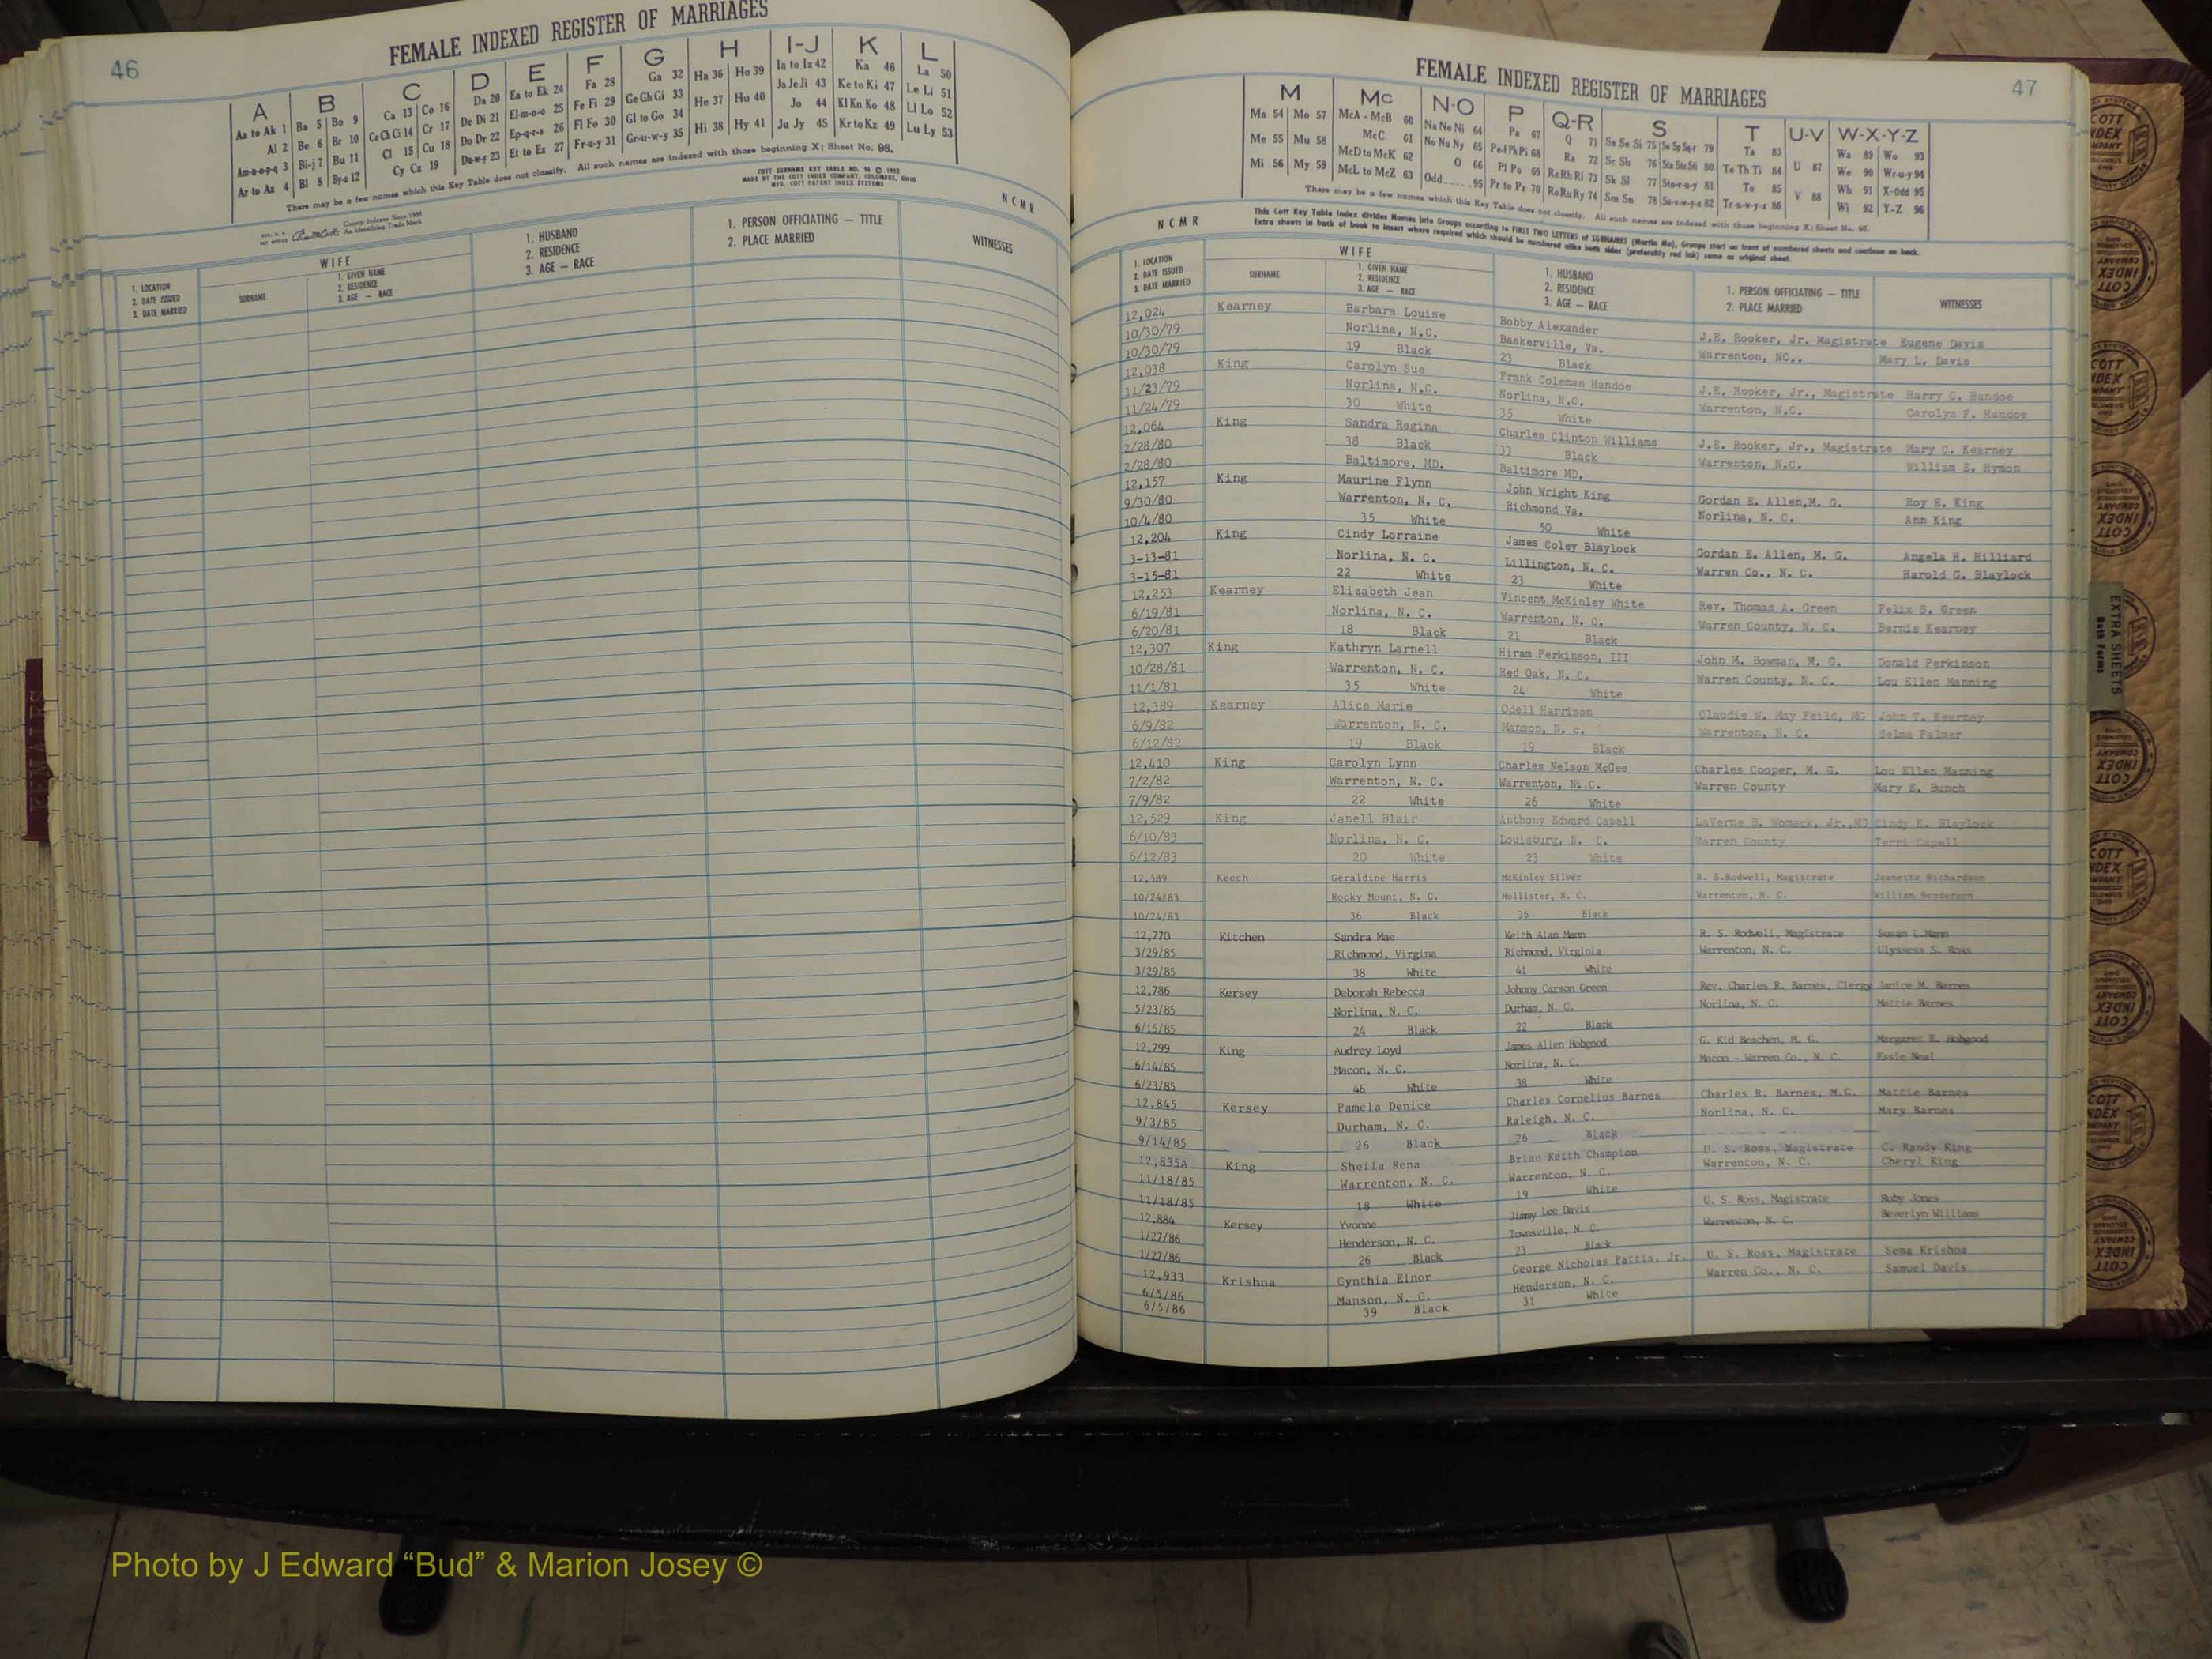 46
FEMALE INDEXED REGISTER OF MARRIAGES
A B C D E F G H I-J K L
Aa to Ak 1 Ba 5 Bo 9 Ca 13 Co 16 Da 20 Ea to Ek 24 Fa 28 Ga 32 Ha 36 Ho 39 Ia to Iz 42 Ka 46 La 50
Al 2 Be 6 Br 10 Ce Ch Ci 14 Cr 17 De Di 21 El-m-n-o 25 Fe Fi 29 Ge Gh Gi 33 He 37 Hu 40 Ja Je Ji 43 Ke to Ki 47 Le Li 51
Am-n-o-p-q 3 Bi-j 7 Bu 11 Cl 15 Cu 18 Do Dr 22 Ep-q-r-s 26 Fl Fo 30 Gl to Go 34 Hi 38 Hy 41 Jo 44 Kl Kn Ko 48 Ll Lo 52
Ar to Az 4 Bl 8 By-z 12 Cy Cz 19 Du-w-y 23 Et to Ez 27 Fr-u-y 31 Gr-u-w-y 35 Ju Jy 45 Kr to Kz 49 Lu Ly 53
There may be a few names which this Key Table does not classify. All such names are indexed with those beginning X; Sheet No. 95.
COTT SURNAME KEY TABLE NO. 96 © 1952
MADE BY THE COTT INDEX COMPANY, COLUMBUS, OHIO
MFG. COTT PATENT INDEX SYSTEMS
County Indexes Since 1888
An Identifying Trade Mark
NCMR
1. LOCATION
2. DATE ISSUED
3. DATE MARRIED
WIFE
SURNAME
1. GIVEN NAME
2. RESIDENCE
3. AGE — RACE
1. HUSBAND
2. RESIDENCE
3. AGE — RACE
1. PERSON OFFICIATING — TITLE
2. PLACE MARRIED
WITNESSES
47
FEMALE INDEXED REGISTER OF MARRIAGES
M Mc N-O P Q-R S T U-V W-X-Y-Z
Ma 54 Mo 57 McA - McB 60 Na Ne Ni 64 Pa 67 Q 71 Sa Se Si 75 So Sp Sq-r 79 Ta 83 U 87 Wa 89 Wo 93
Me 55 Mu 58 McC 61 No Nu Ny 65 Pe-f Ph Pi 68 Ra 72 Sc Sh 76 Sta Ste Sti 80 Te Th Ti 84 V 88 We 90 Wr-u-y 94
Mi 56 My 59 McD to McK 62 O 66 Pl Po 69 Re Rh Ri 73 Sk Sl 77 Sto-r-u-y 81 To 85 Wh 91 X-Odd 95
McL to McZ 63 Odd 95 Pr to Pz 70 Ro Ru Ry 74 Sm Sn 78 Su-v-w-y-z 82 Tr-u-w-y-z 86 Wi 92 Y-Z 96
There may be a few names which this Key Table does not classify. All such names are indexed with those beginning X; Sheet No. 95.
NCMR
This Cott Key Table Index divides Names into Groups according to FIRST TWO LETTERS of SURNAMES (Martin Ma), Groups start on front of numbered sheets and continue on back.
Extra sheets in back of book to insert where required which should be numbered alike both sides (preferably red ink) same as original sheet.
1. LOCATION
2. DATE ISSUED
3. DATE MARRIED
WIFE
SURNAME
1. GIVEN NAME
2. RESIDENCE
3. AGE — RACE
1. HUSBAND
2. RESIDENCE
3. AGE — RACE
1. PERSON OFFICIATING — TITLE
2. PLACE MARRIED
WITNESSES
12,024 Kearney Barbara Louise Bobby Alexander J.E. Rooker, Jr. Magistrate Eugene Davis
10/30/79 Norlina, N.C. Baskerville, Va. Warrenton, NC., Mary L. Davis
10/30/79 19 Black 23 Black
12,038 King Carolyn Sue Frank Coleman Handoe J.E. Rooker, Jr., Magistrate Harry C. Handoe
11/23/79 Norlina, N.C. Norlina, N.C. Warrenton, N.C. Carolyn F. Handoe
11/24/79 30 White 35 White
12,064 King Sandra Regina Charles Clinton Williams J.E. Rooker, Jr., Magistrate Mary C. Kearney
2/28/80 38 Black 33 Black Warrenton, N.C. William E. Hymon
2/28/80 Baltimore, MD. Baltimore MD.
12,157 King Maurine Flynn John Wright King Gordan E. Allen,M. G. Roy E. King
9/30/80 Warrenton, N. C. Richmond Va. Norlina, N. C. Ann King
10/4/80 35 White 50 White
12,204 King Cindy Lorraine James Coley Blaylock Gordan E. Allen, M. G. Angela H. Hilliard
3-13-81 Norlina, N. C. Lillington, N. C. Warren Co., N. C. Harold G. Blaylock
3-15-81 22 White 23 White
12,253 Kearney Elizabeth Jean Vincent McKinley White Rev. Thomas A. Green Felix S. Green
6/19/81 Norlina, N. C. Warrenton, N. C. Warren County, N. C. Bernis Kearney
6/20/81 18 Black 21 Black
12,307 King Kathryn Larnell Hiram Perkinson, III John M. Bowman, M. G. Donald Perkinson
10/28/81 Warrenton, N. C. Red Oak, N. C. Warren County, N. C. Lou Ellen Manning
11/1/81 35 White 24 White
12,389 Kearney Alice Marie Odell Harrison Claudie W. May Feild, MG John T. Kearney
6/9/82 Warrenton, N. C. Manson, N. c. Warrenton, N. C. Selma Palmer
6/12/82 19 Black 19 Black
12,410 King Carolyn Lynn Charles Nelson McGee Charles Cooper, M. G. Lou Ellen Manning
7/2/82 Warrenton, N. C. Warrenton, N. C. Warren County Mary E. Bunch
7/9/82 22 White 26 White
12,529 King Janell Blair Anthony Edward Capell LaVerne B. Womack, Jr.,MG Cindy K. Blaylock
6/10/83 Norlina, N. C. Louisburg, N. C. Warren County Terri Capell
6/12/83 20 White 23 White
12,589 Keech Geraldine Harris McKinley Silver R. S.Rodwell, Magistrate Jeanette Richardson
10/24/83 Rocky Mount, N. C. Hollister, N. C. Warrenton, N. C. William Henderson
10/24/83 36 Black 36 Black
12,770 Kitchen Sandra Mae Keith Alan Mann R. S. Rodwell, Magistrate Susan L.Mann
3/29/85 Richmond, Virgina Richmond, Virginia Warrenton, N. C. Ulyssess S. Ross
3/29/85 38 White 41 White
12,786 Kersey Deborah Rebecca Johnny Carson Green Rev. Charles R. Barnes, Clergy Janice M. Barnes
5/23/85 Norlina, N. C. Durham, N. C. Norlina, N. C. Mattie Barnes
6/15/85 24 Black 22 Black
12,799 King Audrey Loyd James Allen Hobgood G. Kid Beachen, M. G. Margaret E. Hobgood
6/14/85 Macon, N. C. Norlina, N. C. Macon - Warren Co., N. C. Essie Neal
6/23/85 46 White 38 White
12,845 Kersey Pamela Denice Charles Cornelius Barnes Charles R. Barnes, M.G. Mattie Barnes
9/3/85 Durham, N. C. Raleigh, N. C. Norlina, N. C. Mary Barnes
9/14/85 26 Black 26 Black
12,835A King Sheila Rena Brian Keith Champion U. S. Ross, Magistrate C. Randy King
11/18/85 Warrenton, N. C. Warrenton, N. C. Warrenton, N. C. Cheryl King
11/18/85 18 White 19 White
12,884 Kersey Yvonne Jimmy Lee Davis U. S. Ross, Magistrate Ruby Jones
1/27/86 Henderson, N. C. Townsville, N. C. Warrenton, N. C. Beverlyn Williams
1/27/86 26 Black 23 Black
12,933 Krishna Cynthia Elnor George Nicholas Pattis, Jr. U. S. Ross, Magistrate Sema Krishna
6/5/86 Manson, N. C. Henderson, N. C. Warren Co., N. C. Samuel Davis
6/5/86 39 Black 31 White
EXTRA SHEETS
Both Forms
Photo by J Edward “Bud” & Marion Josey ©